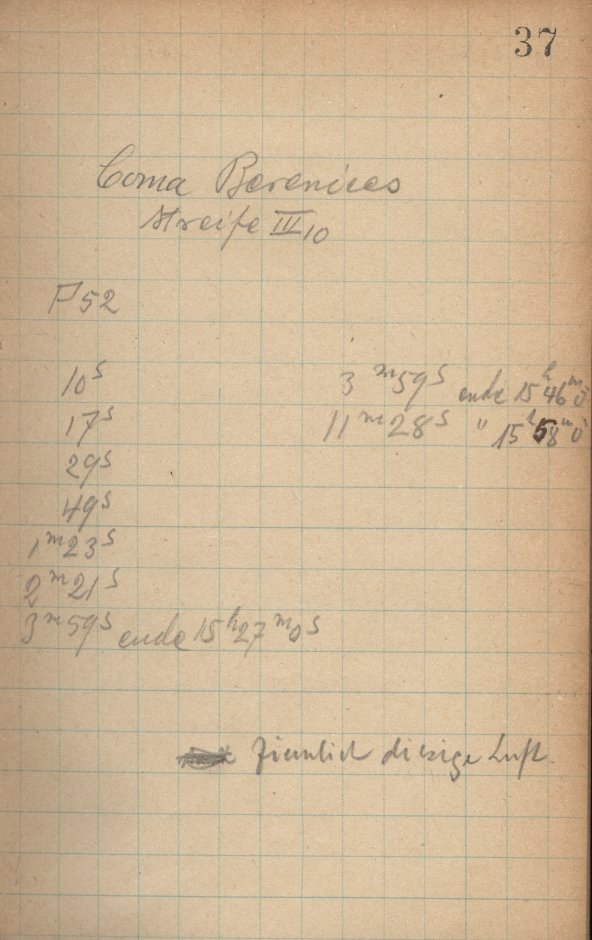 37
Coma Berenices
Streife III 10
P 52
10ˢ
17ˢ
29ˢ
49ˢ
1ᵐ23ˢ
2ᵐ21ˢ
3ᵐ59ˢ ende 15ʰ27ᵐ0ˢ
3ᵐ59ˢ ende 15ʰ46ᵐ0
11ᵐ28ˢ " 15ʰ58ᵐ0
Ziemlich diesige Luft.